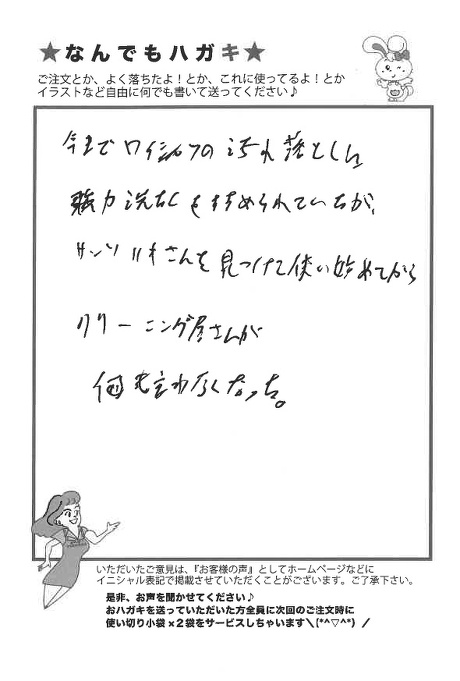 ★なんでもハガキ★
ご注文とか、よく落ちたよ！とか、これに使ってるよ！とか
イラストなど自由に何でも書いて送ってください♪
今までワイシャツの汚れ落としに
強力洗たくをすすめられていたが、
サンソハオさんを見つけて使い始めてから
クリーニング屋さんが
何も言わなくなった。
いただいたご意見は、『お客様の声』としてホームページなどに
イニシャル表記で掲載させていただくことがございます。ご了承下さい。
是非、お声を聞かせてください♪
おハガキを送っていただいた方全員に次回のご注文時に
使い切り小袋×2袋をサービスしちゃいます＼(*^▽^*) ／